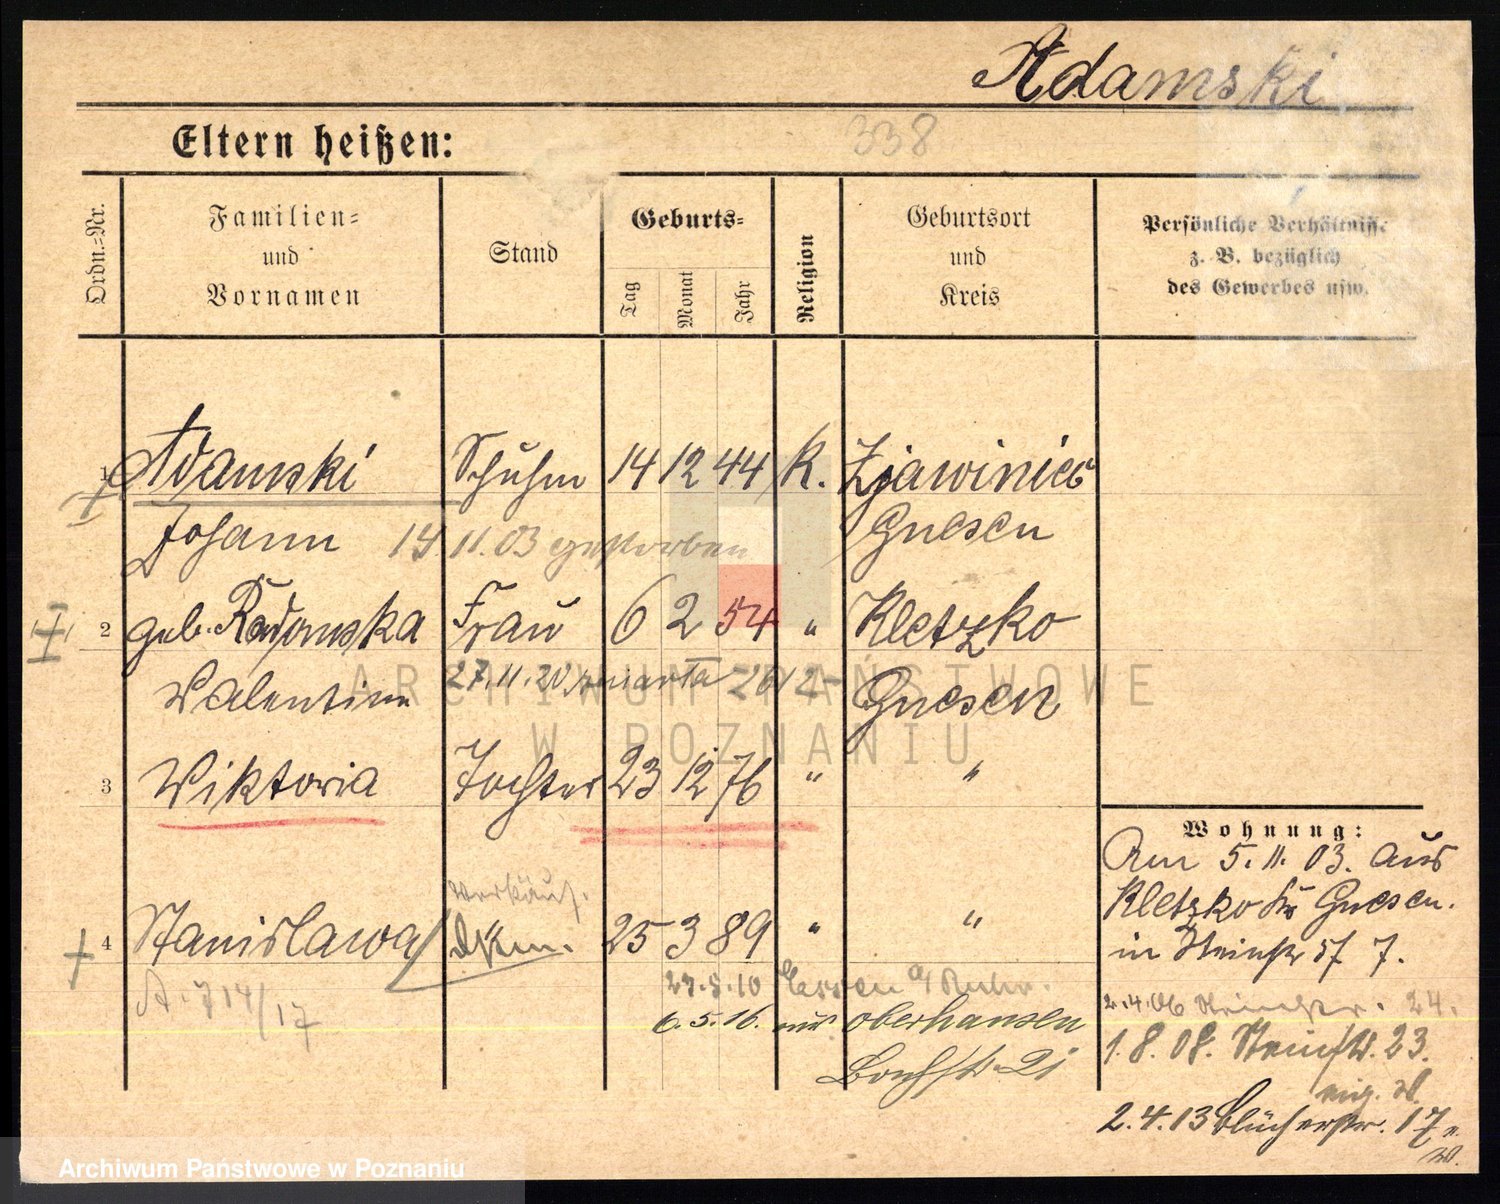 Adamski
338
Eltern heißen:
Ordn.=Nr.
Familien=
und
Vornamen
Stand
Geburts=
Tag
Monat
Jahr
Religion
Geburtsort
und
Kreis
Persönliche Verhältnisse
z. B. bezüglich
des Gewerbes usw.
1 Adamski Schuhm 14 12 44 K.
Gnesen
Johann 14. 11. 03 gestorben
2 geb. Radomska Frau 6 2 54 " Kletzko
Valentine 27. 11. 20 zmarła 2612 Gnesen
3 Wiktoria Tochter 23 12 76 " "
verkäuf.
4 Stanislawa 25 3 89 " "
A. 714/17
27.5.10 Essen a/Ruhr.
6.5.16. aus Oberhausen
21
Wohnung:
Am 5. 11. 03. aus
Kletzko Kr Gnesen.
in 7.
2.4.06 24.
1.8.08. 23.
2.4.13 Blücherstr. 17
ARCHIWUM PAŃSTWOWE
W POZNANIU
Archiwum Państwowe w Poznaniu